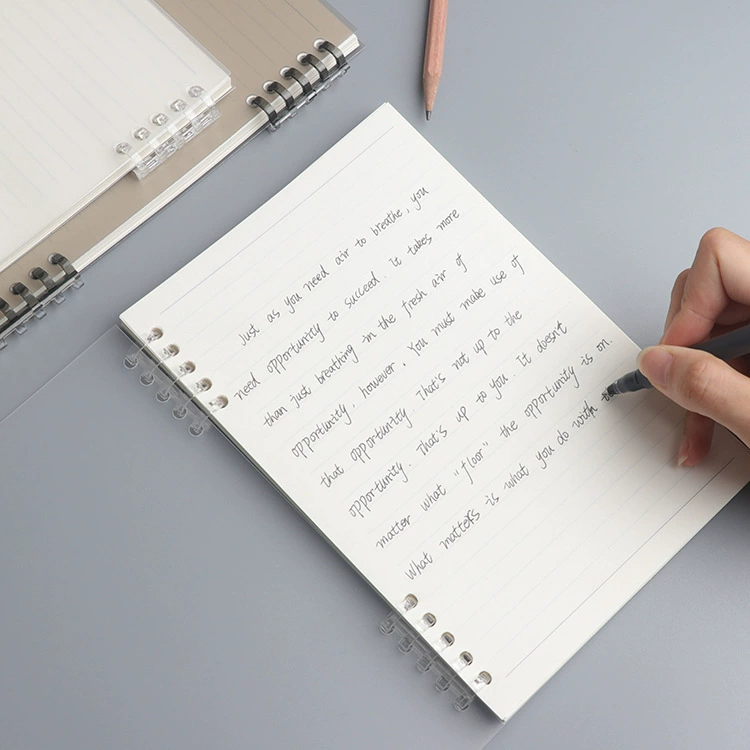 Just as you need air to breathe, you
need opportunity to succeed. It takes more
than just breathing in the fresh air of
opportunity, however. You must make use of
that opportunity. That's not up to the
opportunity. That's up to you. It doesn't
matter what "floor" the opportunity is on.
What matters is what you do with